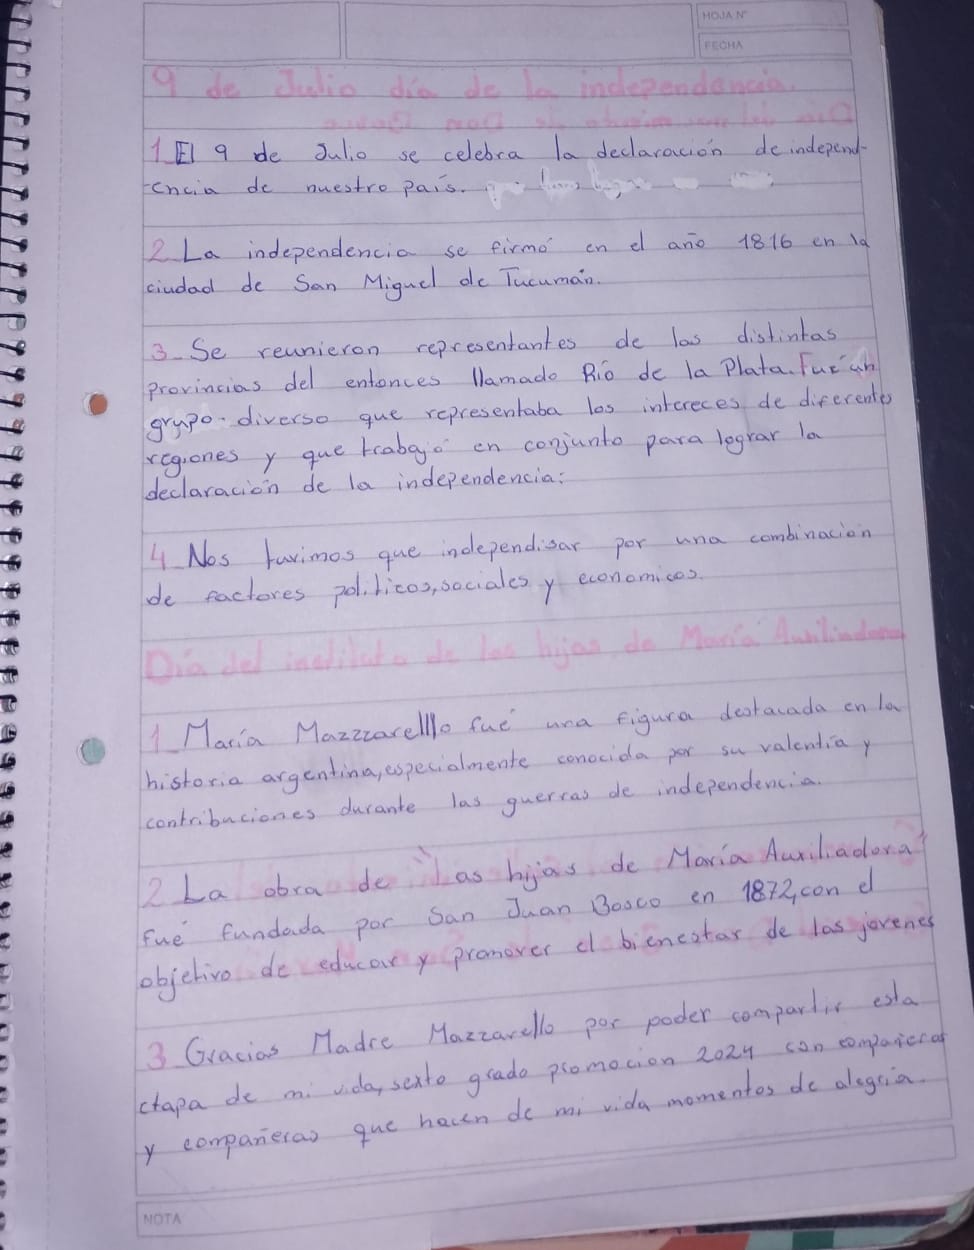 HOJA N°
FECHA
9 de Julio día de la independencia.
1_ El 9 de Julio se celebra la declaración de independ-
encia de nuestro país.
2_ La independencia se firmó en el año 1816 en la
ciudad de San Miguel de Tucumán.
3_ Se reunieron representantes de las distintas
provincias del entonces llamado Río de la Plata. Fué un
grupo diverso que representaba los intereces de diferentes
regiones y que trabajó en conjunto para lograr la
declaración de la independencia.
4_ Nos tuvimos que independisar por una combinación
de factores politicos, sociales y economicos.
Día del instituto de las hijas de María Auxiliadora
1_ María Mazzzarelllo fué una figura destacada en la
historia argentina, especialmente conocida por su valentía y
contribuciones durante las guerras de independencia.
2_ La obra de "Las hijas de María Auxiliadora"
fué fundada por San Juan Bosco en 1872, con el
objetivo de educar y promover el bienestar de los jovenes
3_ Gracias Madre Mazzarello por poder compartir esta
etapa de mi vida, sexto grado promocion 2024 con compañeros
y compañeras que hacen de mi vida momentos de alegria.
NOTA